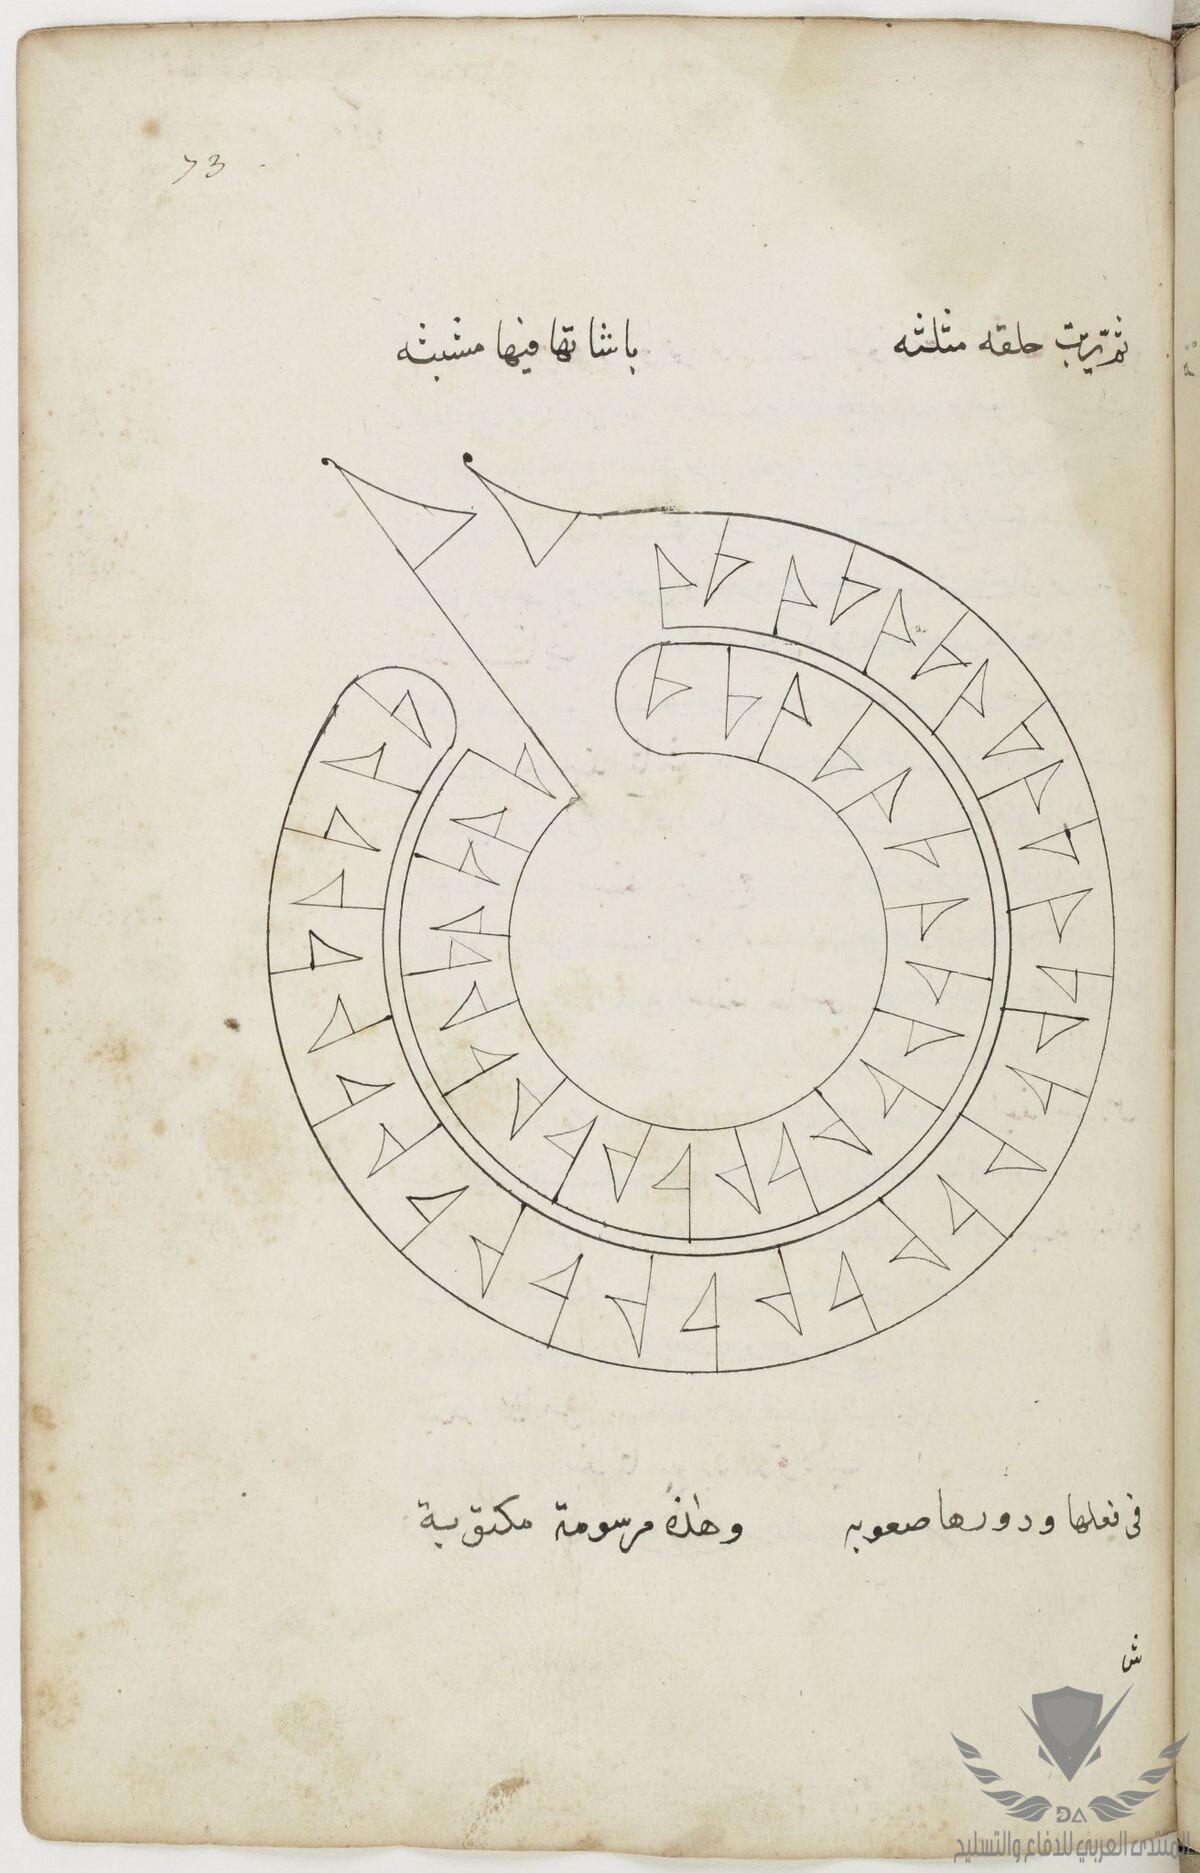 73
ثم يرتب حلقه مثلثه باشاتها فيها مشبثه
فى فعلها ودورها صعوبه وهذه مرسومة مكتوبة
المنتدى العربي للدفاع والتسليح